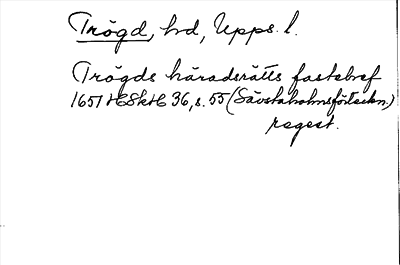 Trögd, hd, Upps. l.
Trögds häradsrätts fastebref
1651 HSkH 36, s. 55 (Säfstaholmsförteckn.)
regest.